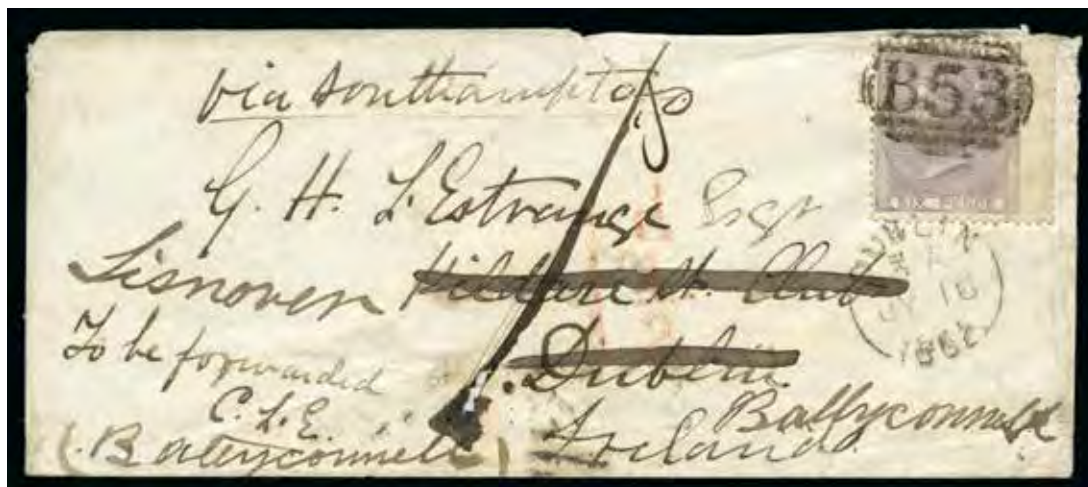 via Southampton
B53
SIX PENCE
G. H. L'Estrange Esqr
Lisnover Kildare St. Club
18
Dublin
1862
To be forwarded
C. L. E.
Ballyconnell
Ballyconnell
Ireland